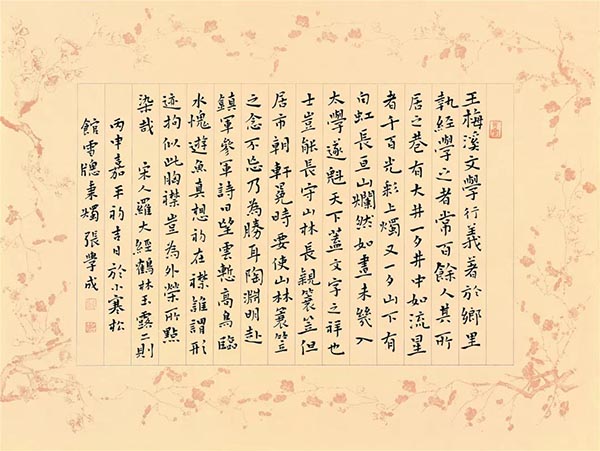 王梅溪文學行義著於鄉里
執經學之者常百餘人其所
居之巷有大井一夕井中如流星
者千百光彩上燭又一夕山下有
白虹長亘山爛然如晝未幾入
太學遂魁天下蓋文字之祥也
士豈能長守山林長親蓑笠但
居市朝軒冕時要使山林蓑笠
之念不忘乃為勝耳陶淵明赴
鎮軍參軍詩曰望雲慙高鳥臨
水愧遊魚真想初在襟誰謂形
迹拘似此胸襟豈為外榮所點
染哉 宋人羅大經鶴林玉露二則
丙申嘉平初吉日於小寒松
館雪牕秉燭張學成